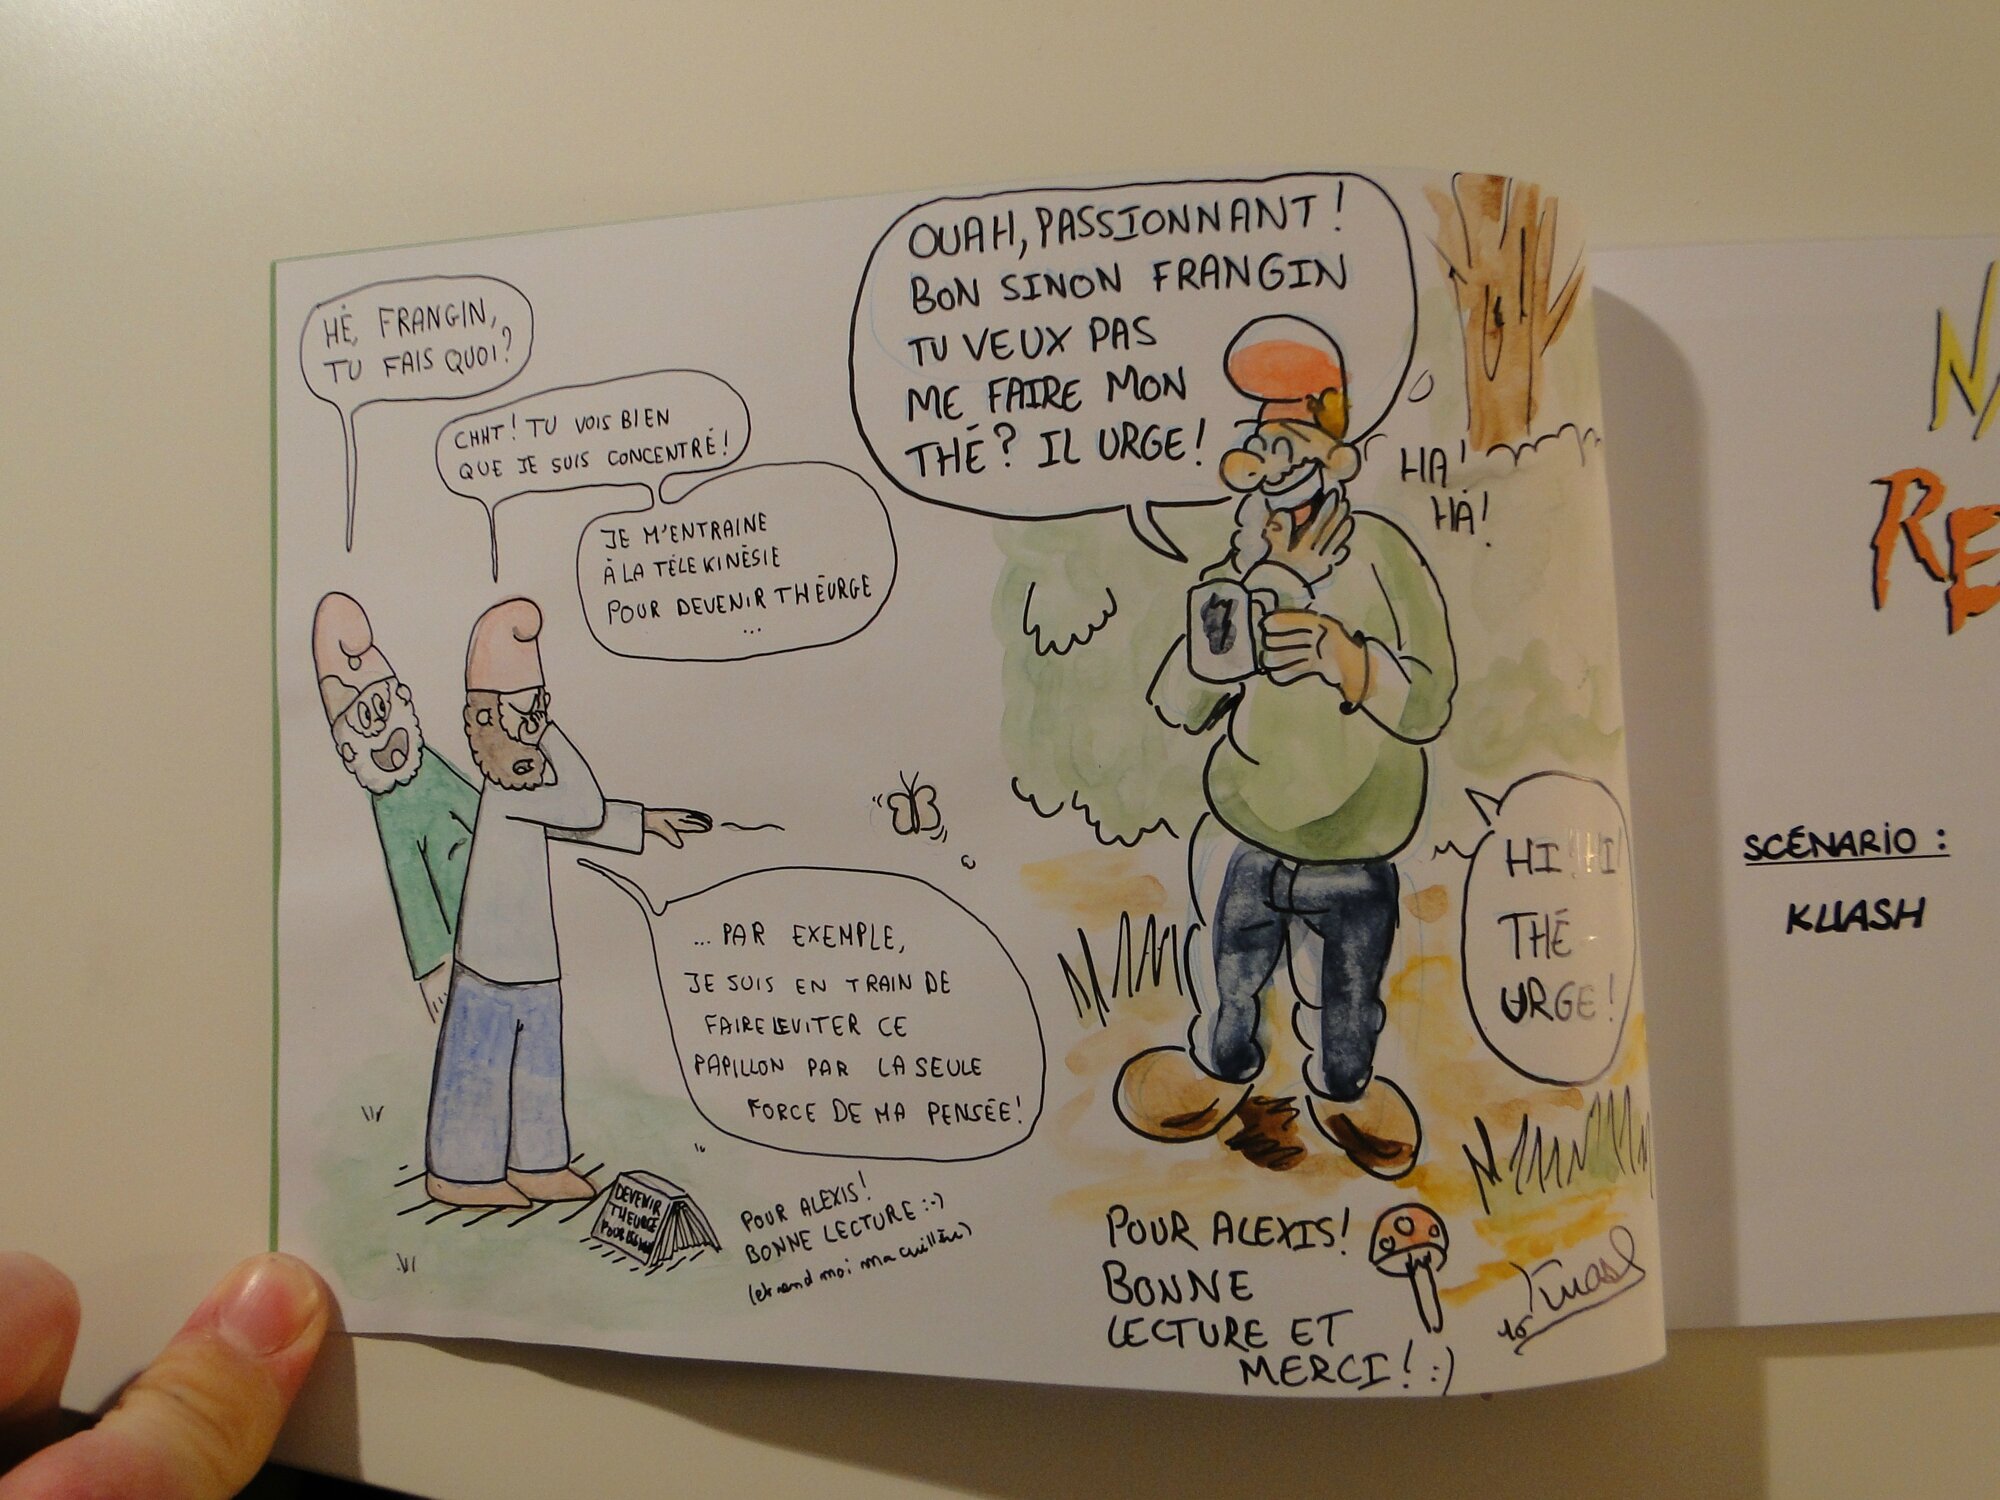 HÉ, FRANGIN,
TU FAIS QUOI?
CHHT! TU VOIS BIEN
QUE JE SUIS CONCENTRÉ!
JE M'ENTRAINE
À LA TÉLEKINÉSIE
POUR DEVENIR THÉURGE
...
... PAR EXEMPLE,
JE SUIS EN TRAIN DE
FAIRE LEVITER CE
PAPILLON PAR LA SEULE
FORCE DE MA PENSÉE!
OUAH, PASSIONNANT!
BON SINON FRANGIN
TU VEUX PAS
ME FAIRE MON
THÉ? IL URGE!
HA!
HA!
HI! HI!
THÉ
URGE!
DEVENIR
THEURGE
POUR
POUR ALEXIS!
BONNE LECTURE :-)
(et rend moi ma cuillère)
POUR ALEXIS!
BONNE
LECTURE ET
MERCI! :)
Kuash
16
RE
SCÉNARIO :
KUASH